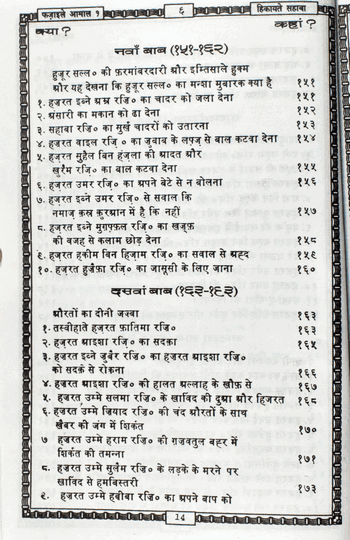 फ़ज़ाइले आमाल १ ६ हिकायते सहाबा
क्या ? कहां ?
नवाँ बाब (१५१-१६२)
हुज़ूर सल्ल० की फ़रमांबरदारी और इम्तिसाले हुक्म
और यह देखना कि हुज़ूर सल्ल० का मन्शा मुबारक क्या है १५१
१. हज़रत इब्ने उम्र रज़ि० का चादर को जला देना १५१
२. अंसारी का मकान को ढा देना १५२
३. सहाबा रज़ि० का सुर्ख चादरों को उतारना १५३
४. हज़रत वाइल रज़ि० का जुबाब के लफ़्ज़ से बाल कटवा देना १५४
५. हज़रत सुहैल बिन हंज़ला की आदत और
खुरैम रज़ि० का बाल कटवा देना १५५
६. हज़रत उमर रज़ि० का अपने बेटे से न बोलना १५६
७. हज़रत इब्ने उमर रज़ि० से सवाल कि
नमाज़ क़स्र क़ुरआन में है कि नहीं १५७
८. हज़रत इब्ने मुग़फ़्फ़ल रज़ि० का ख़ज़फ़
की वजह से कलाम छोड़ देना १५८
९. हज़रत हकीम बिन हिज़ाम रज़ि० का सवाल से अह्द १५९
१०. हज़रत हुज़ैफ़ा रज़ि० का जासूसी के लिए जाना १६०
दसवां बाब (१६३-१९३)
औरतों का दीनी जज़्बा १६३
१. तस्बीहाते हज़रत फ़ातिमा रज़ि० १६३
२. हज़रत आइशा रज़ि० का सदक़ा १६५
३. हज़रत इब्ने ज़ुबैर रज़ि० का हज़रत आइशा रज़ि०
को सदक़े से रोकना १६६
४. हज़रत आइशा रज़ि० की हालत अल्लाह के ख़ौफ़ से १६७
५. हज़रत उम्मे सलमा रज़ि० के ख़ाविंद की दुआ और हिजरत १६८
६. हज़रत उम्मे ज़ियाद रज़ि० की चंद औरतों के साथ
ख़ैबर की जंग में शिर्कत १७०
७ हज़रत उम्मे हराम रज़ि० की ग़ज़वतुल बह्र में
शिर्कत की तमन्ना १७१
८. हज़रत उम्मे सुलैम रज़ि० के लड़के के मरने पर
ख़ाविंद से हमबिस्तरी १७३
९. हज़रत उम्मे हबीबा रज़ि० का अपने बाप को
14